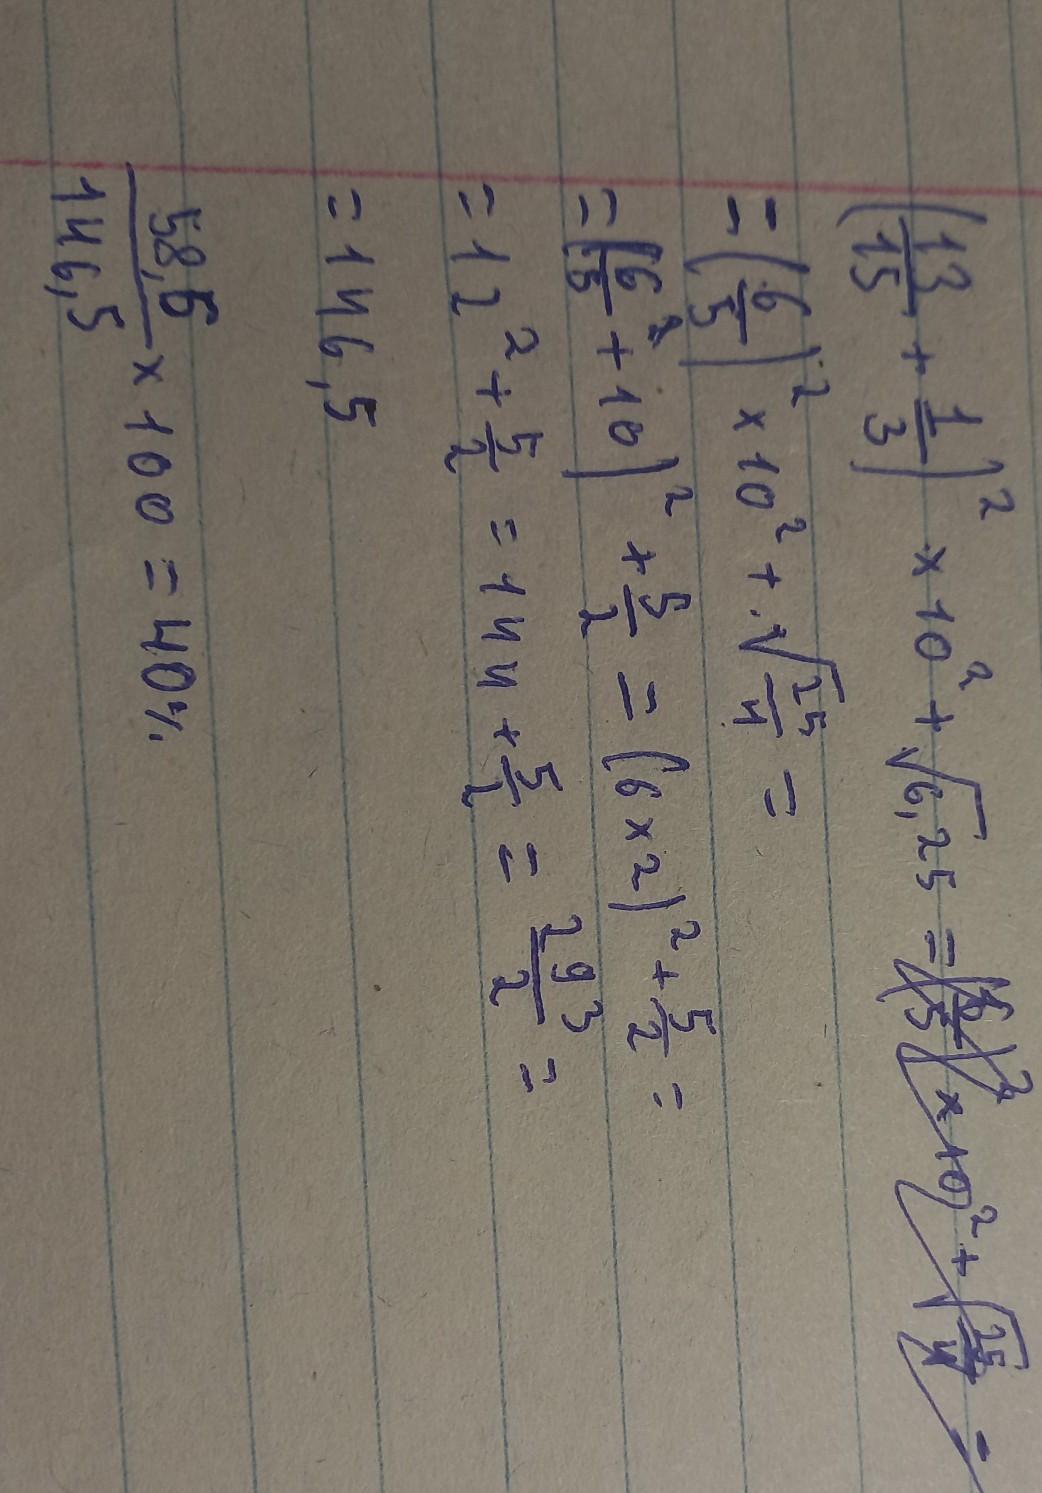 (13/15 + 1/3)² × 10² + √6,25 =
= (6/5)² × 10² + √25/4 =
= (6/5 + 10²)² + 5/2 = (6×2)² + 5/2 =
= 12² + 5/2 = 144 + 5/2 = 293/2 =
= 146,5
58,6/146,5 × 100 = 40%